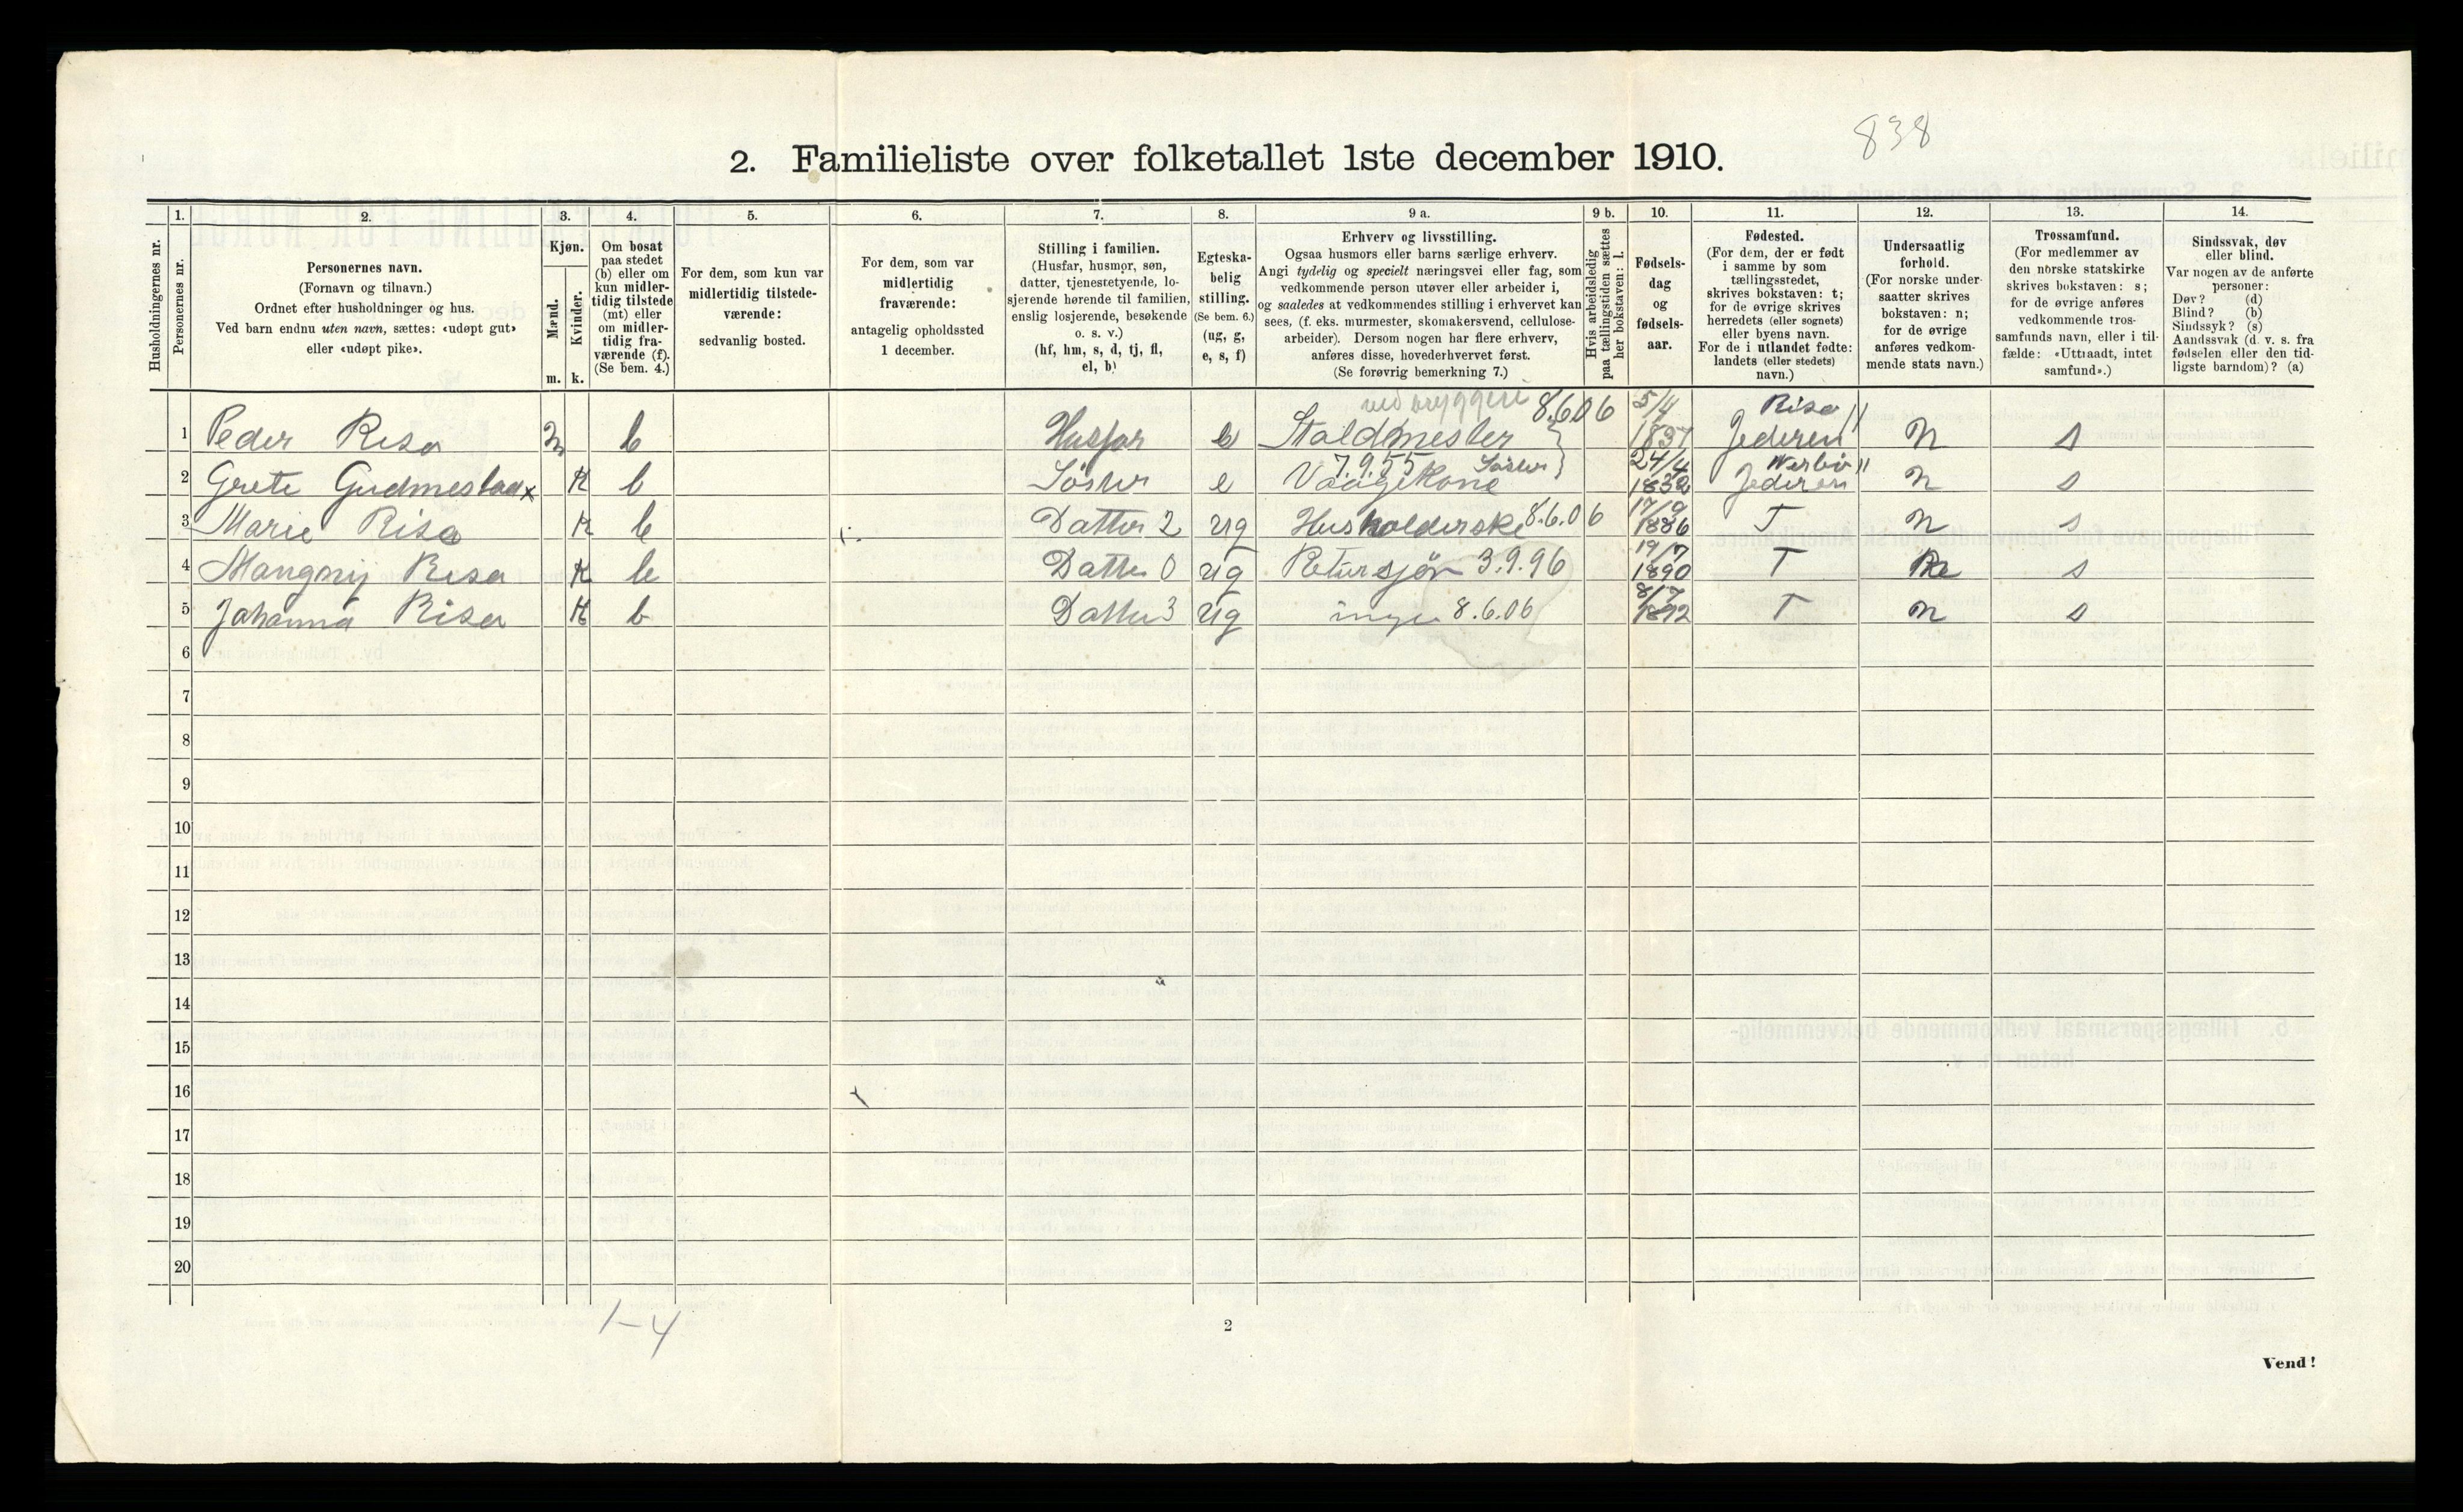 838
2. Familieliste over folketallet 1ste december 1910.
Husholdningernes nr.
1. Personernes nr.
2. Personernes navn.
(Fornavn og tilnavn.)
Ordnet efter husholdninger og hus.
Ved barn endnu uten navn, sættes: «udøpt gut»
eller «udøpt pike».
3. Kjøn.
Mænd. m.
Kvinder. k.
4. Om bosat
paa stedet
(b) eller om
kun midler-
tidig tilstede
(mt) eller
om midler-
tidig fra-
værende (f).
(Se bem. 4.)
5. For dem, som kun var
midlertidig tilstede-
værende:
sedvanlig bosted.
6. For dem, som var
midlertidig
fraværende:
antagelig opholdssted
1 december.
7. Stilling i familien.
(Husfar, husmor, søn,
datter, tjenestetyende, lo-
sjerende hørende til familien,
enslig losjerende, besøkende
o. s. v.)
(hf, hm, s, d, tj, fl,
el, b)
8. Egteska-
belig
stilling.
(Se bem. 6.)
(ug, g,
e, s, f)
9 a. Erhverv og livsstilling.
Ogsaa husmors eller barns særlige erhverv.
Angi tydelig og specielt næringsvei eller fag, som
vedkommende person utøver eller arbeider i,
og saaledes at vedkommendes stilling i erhvervet kan
sees, (f. eks. murmester, skomakersvend, cellulose-
arbeider). Dersom nogen har flere erhverv,
anføres disse, hovederhvervet først.
(Se forøvrig bemerkning 7.)
9 b. Hvis arbeidsledig
paa tællingstiden sættes
her bokstaven: l.
10. Fødsels-
dag
og
fødsels-
aar.
11. Fødested.
(For dem, der er født
i samme by som
tællingsstedet,
skrives bokstaven: t;
for de øvrige skrives
herredets (eller sognets)
eller byens navn.
For de i utlandet fødte:
landets (eller stedets)
navn.)
12. Undersaatlig
forhold.
(For norske under-
saatter skrives
bokstaven: n;
for de øvrige
anføres vedkom-
mende stats navn.)
13. Trossamfund.
(For medlemmer av
den norske statskirke
skrives bokstaven: s;
for de øvrige anføres
vedkommende tros-
samfunds navn, eller i til-
fælde: «Uttraadt, intet
samfund».)
14. Sindssvak, døv
eller blind.
Var nogen av de anførte
personer:
Døv? (d)
Blind? (b)
Sindssyk? (s)
Aandssvak (d. v. s. fra
fødselen eller den tid-
ligste barndom)? (a)
ved bryggeri 8.606 5/4 Risa
1 Peder Risa m b Husfar e Staldmester 1837 Jederen n s
7.9.55 Søster 24/4
2 Grete Gudmestad x K b Söster e Vaagekone 1832 Jederen n s
17/9
3 Marie Risa K b Datter 2 ug Husholderske 8.6.06 1886 T n s
19/7
4 Mangny Risa K b Datter 0 ug Retursjør 3.9.96 1890 T n s
8/7
5 Johanna Risa K b Datter 3 ug ingen 8.6.06 1892 T n s
6
7
8
9
10
11
12
13
14
15
16
17
18
19
20
1-4
2
Vend!